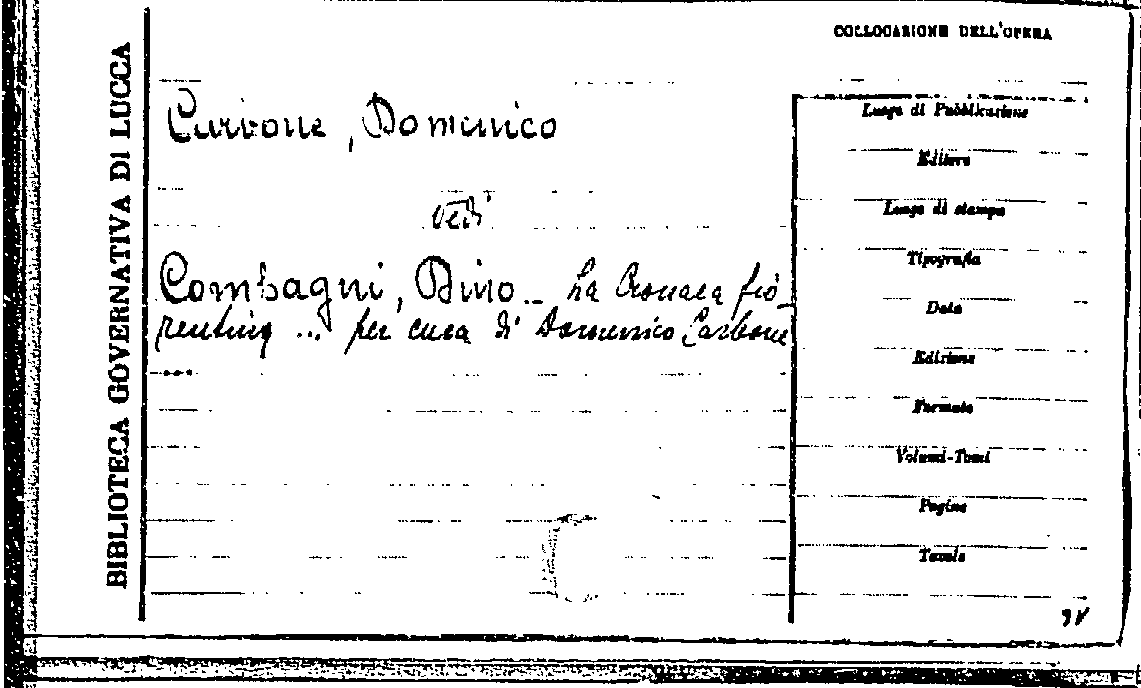 BIBLIOTECA GOVERNATIVA DI LUCCA
COLLOCAZIONE DELL'OPERA
Carbone, Domenico
vedi
Compagni, Dino _ La Cronaca fio_
rentina ... per cura di Domenico Carbone
....
Luogo di Pubblicazione
Editore
Luogo di stampa
Tipografia
Data
Edizione
Formato
Volumi-Tomi
Pagine
Tavole